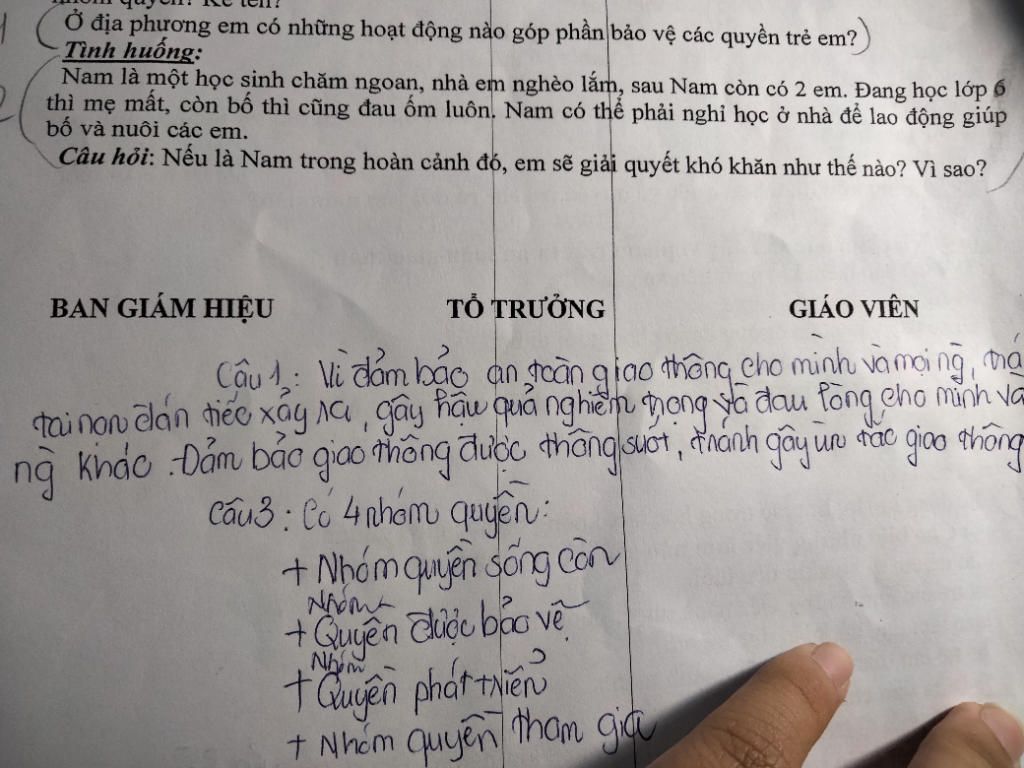 nhóm quyền? Kể tên?
Ở địa phương em có những hoạt động nào góp phần bảo vệ các quyền trẻ em?)
Tình huống:
Nam là một học sinh chăm ngoan, nhà em nghèo lắm, sau Nam còn có 2 em. Đang học lớp 6
thì mẹ mất, còn bố thì cũng đau ốm luôn. Nam có thể phải nghỉ học ở nhà để lao động giúp
bố và nuôi các em.
Câu hỏi: Nếu là Nam trong hoàn cảnh đó, em sẽ giải quyết khó khăn như thế nào? Vì sao?
BAN GIÁM HIỆU TỔ TRƯỞNG GIÁO VIÊN
Câu 1: Vì đảm bảo an toàn giao thông cho mình và mọi ng̀,
tai nạn đán tiếc xảy ra, gây hậu quả nghiêm trọng và đau lòng cho mình và
ng̀ khác. Đảm bảo giao thông được thông suốt, tránh gây ùn tắc giao thông
Câu 3: Có 4 nhóm quyền:
+ Nhóm quyền sống còn
Nhóm
+ Quyền được bảo vệ
Nhóm
+ Quyền phát triển
+ Nhóm quyền tham gia